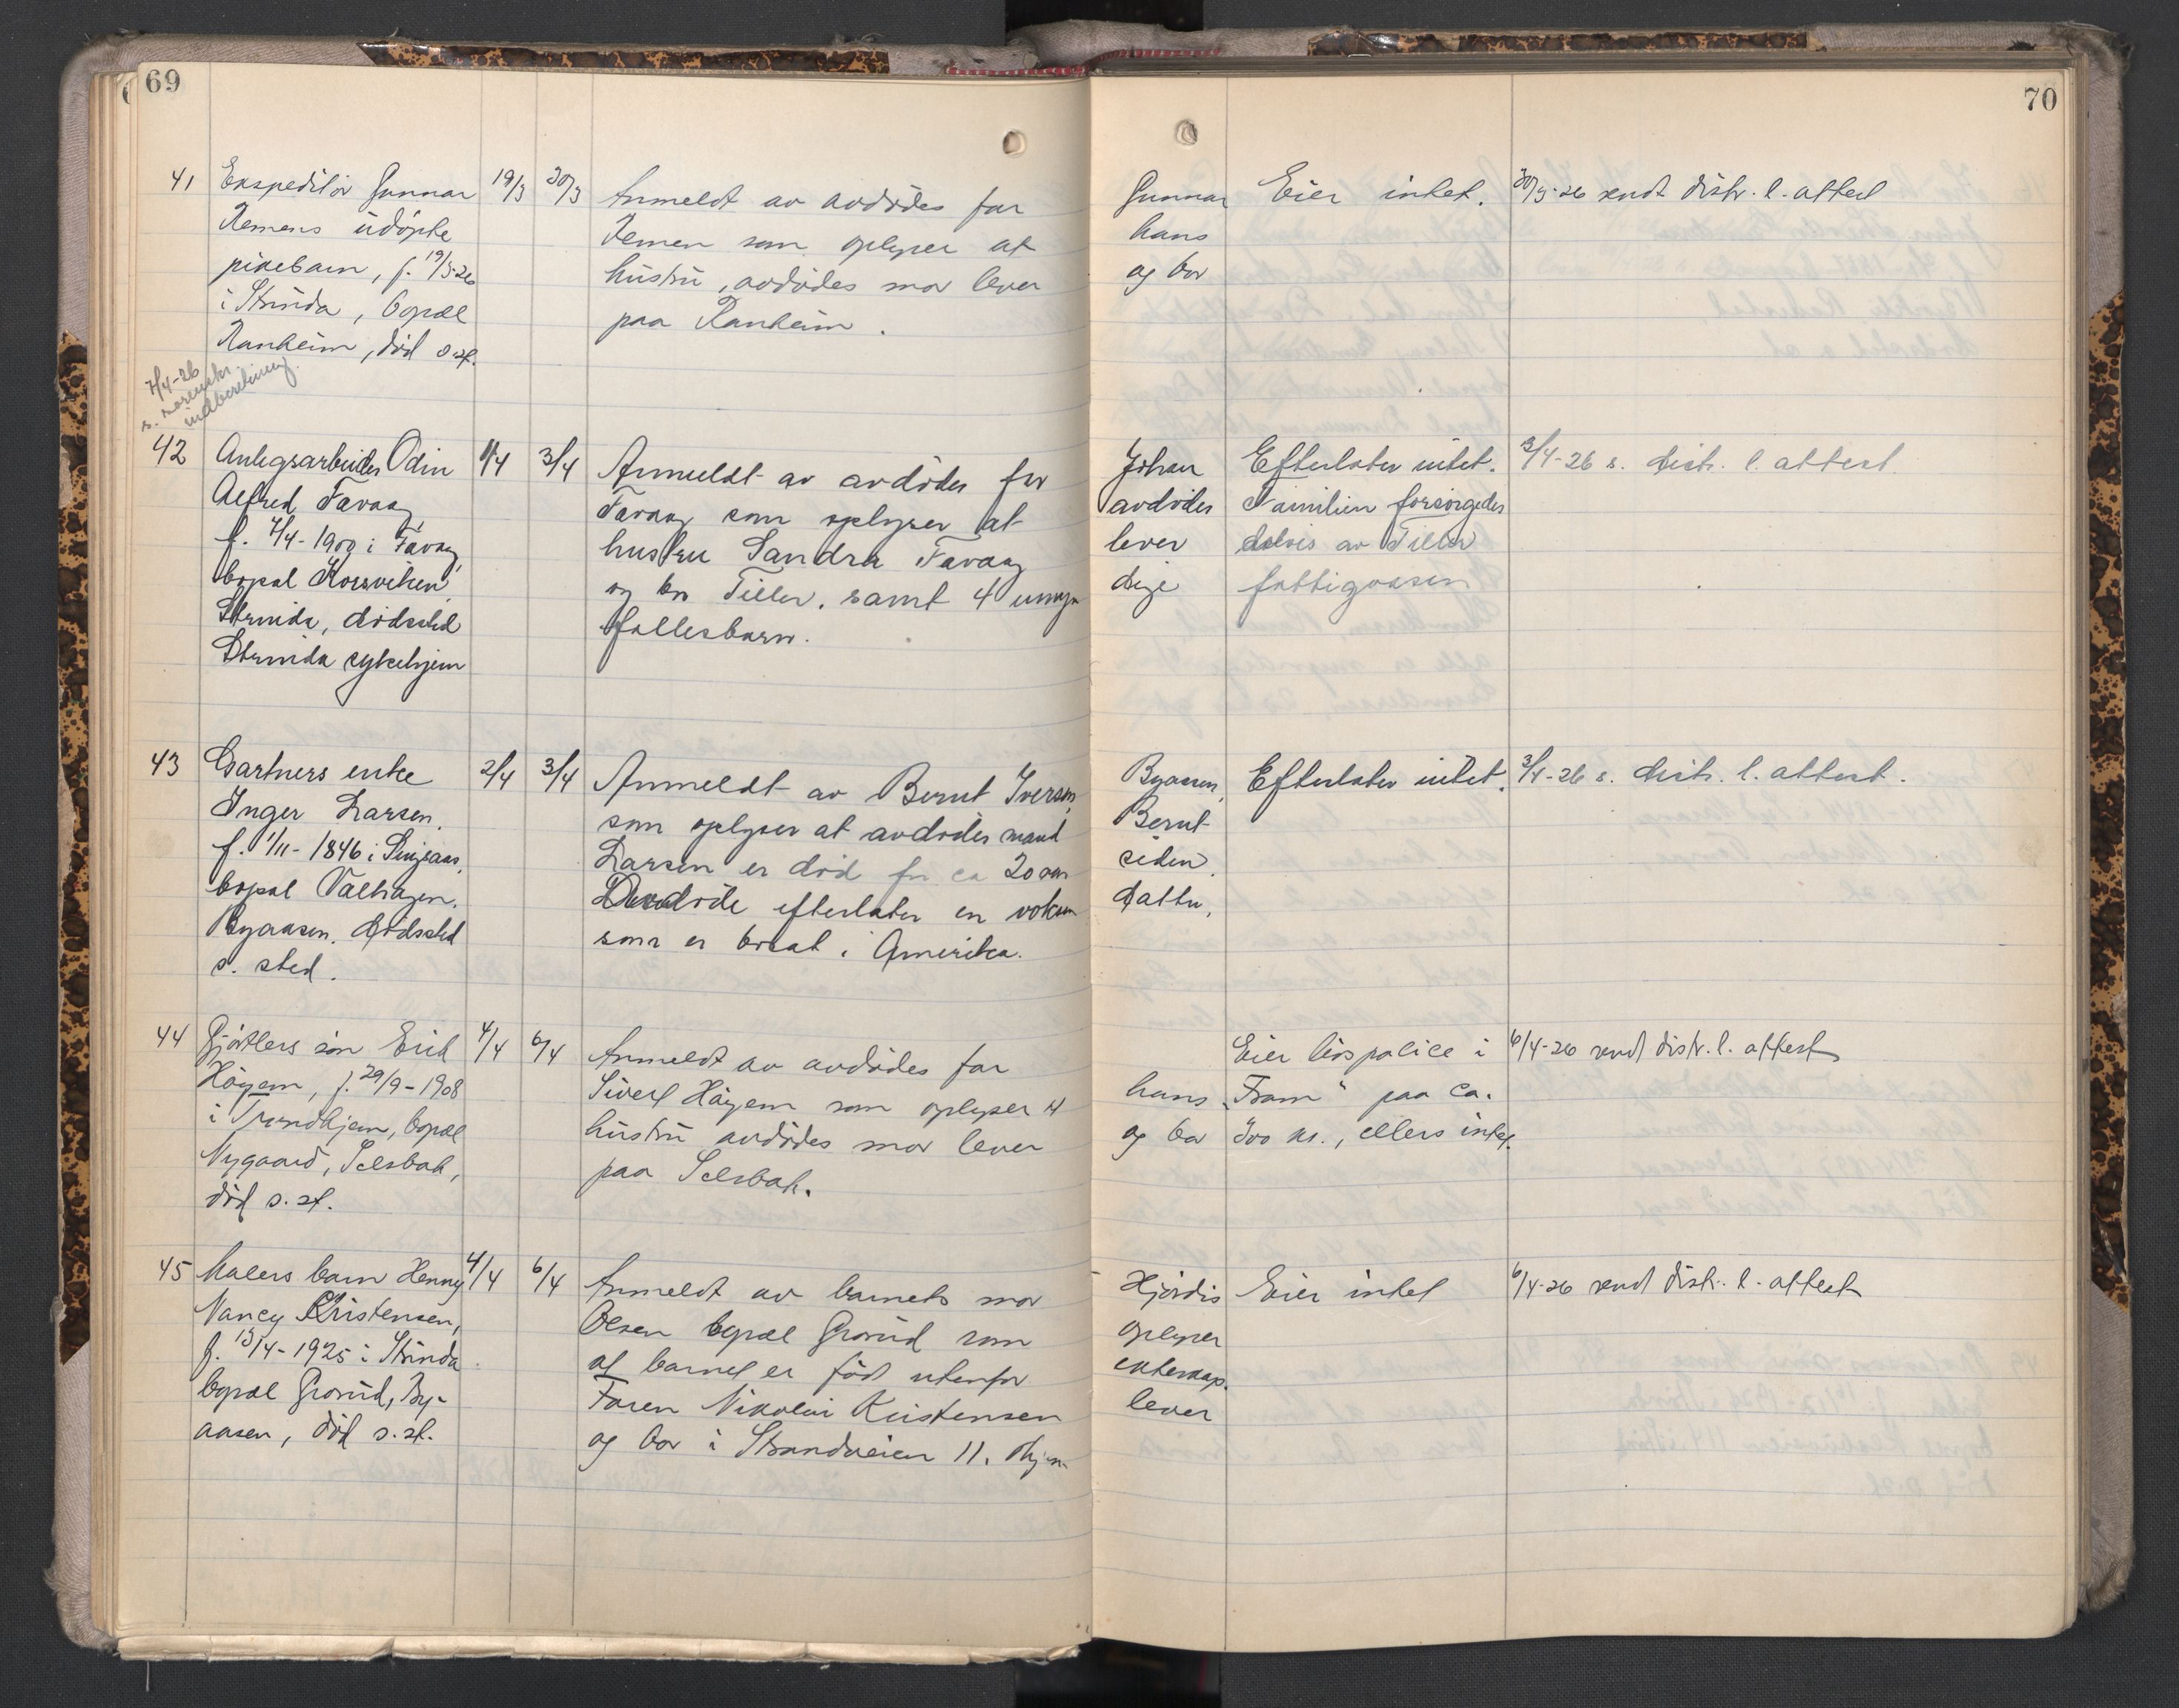 69
70
41 Ekspeditör Gunnar 19/3 30/3 Anmeldt av avdødes far Gunnar Eier intet. 30/3-26 sendt distr. l. attest
Remens udøpte Remen som oplyser at hans
pikebarn, f. 19/3-26 hustru, avdødes mor lever og bor
i Strinda, bopæl paa Ranheim.
Ranheim, død s. st.
7/4-26
s. sorenskr.
indberetning.
42 Anlegsarbeider Odin 1/4 3/4 Anmeldt av avdødes far Johan Efterlater intet. 3/4-26 s. distr. l. attest.
Alfred Favaag Favaag som oplyser at avdødes Familien forsørgedes
f. 7/4-1900 i Favaag, hustru Sandra Favaag lever delvis av Tiller
bopæl Korsviken, og bor Tiller, samt 4 umyn dige fattigvæsen
Strinda, dødssted fællesbarn.
Strinda sykehjem
43 Gartners enke 2/4 3/4 Anmeldt av Bernt Iversen, Byaasen, Efterlater intet. 3/4-26 s. distr. l. attest.
Inger Larsen, som oplyser at avdødes mand Bernt
f. 1/11-1846 i Singsaas, Larsen er død for ca 20 aar siden.
bopæl Valhaugen, Avdøde efterlater en voksen datter,
Byaasen, dødssted som er bosat i Amerika.
s. sted.
44 Gjørtlers søn Erik 4/4 6/4 Anmeldt av avdødes far Eier livspolice i 6/4-26 sendt distr. l. attest
Høyem, f. 29/9-1908 Sivert Høyem som oplyser at hans „Fram" paa ca.
i Trondhjem, bopæl hustru avdødes mor lever og bor 300 kr., ellers intet.
Nygaard, Selsbak, paa Selsbak.
død s. st.
45 Malers barn Henny 4/4 6/4 Anmeldt av barnets mor Hjørdis Eier intet 6/4-26 sendt distr. l. attest
Nancy Kristensen, Olsen bopæl Grorud som oplyser
f. 13/4-1925 i Strinda at barnet er født utenfor ekteskap.
bopæl Grorud, By- Faren Nikolai Kristensen lever
aasen, død s. st. og bor i Strandveien 11. Thjem